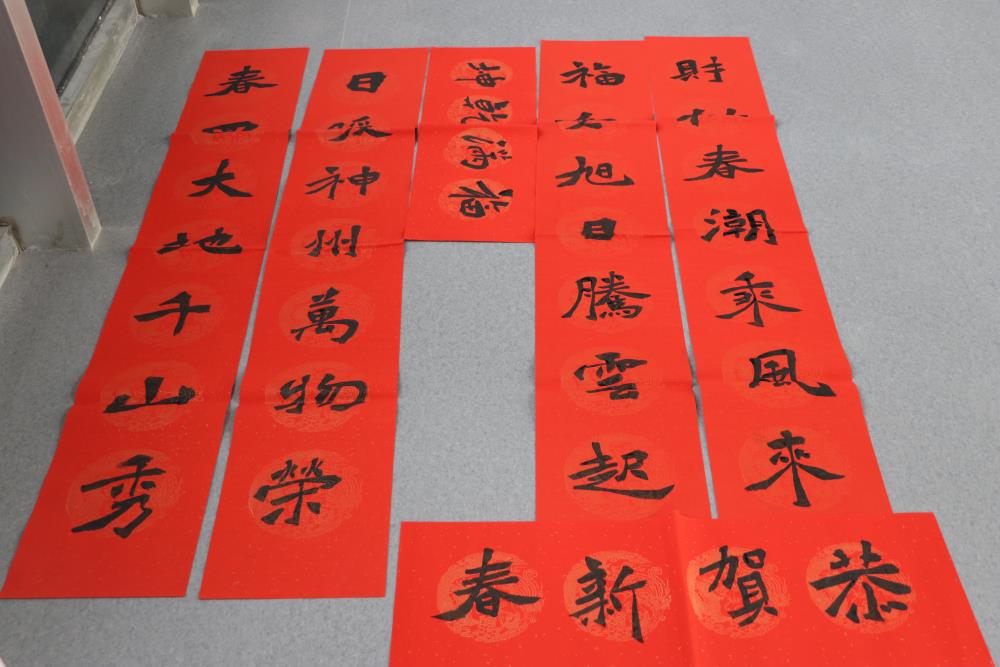 財似春潮乘風來
福如旭日騰雲起
福滿乾坤
日暖神州萬物榮
春回大地千山秀
恭賀新春